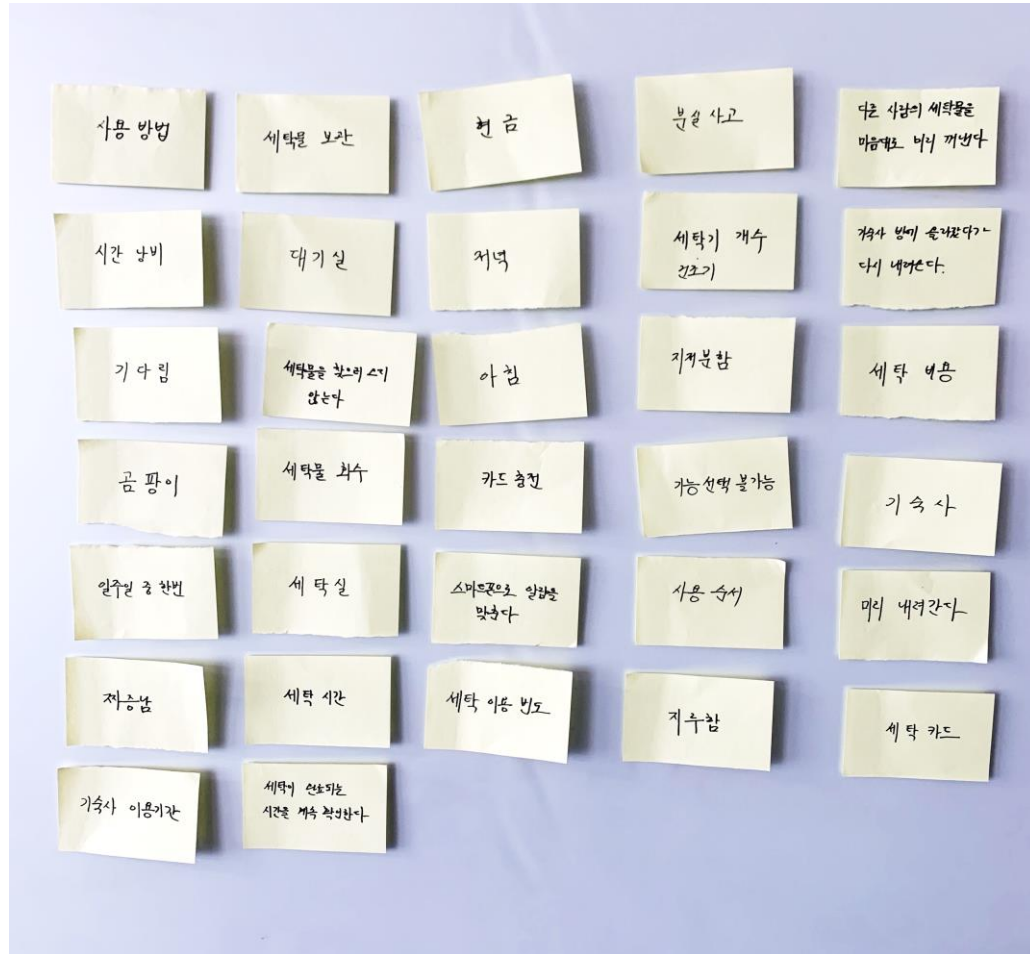 사용 방법
세탁물 보관
현금
분실 사고
다른 사람의 세탁물을
마음대로 미리 꺼낸다
시간 낭비
대기실
저녁
세탁기 개수
건조기
기숙사 방에 올라갔다가
다시 내려온다.
기다림
세탁물을 찾으러 오지
않는다
아침
지저분함
세탁 비용
곰팡이
세탁물 회수
카드 충전
기능 선택 불가능
기숙사
일주일 중 한번
세탁실
스마트폰으로 알람을
맞춘다
사용 순서
미리 내려간다
짜증남
세탁 시간
세탁 이용 빈도
지루함
세탁 카드
기숙사 이용기간
세탁이 완료되는
시간을 계속 확인한다